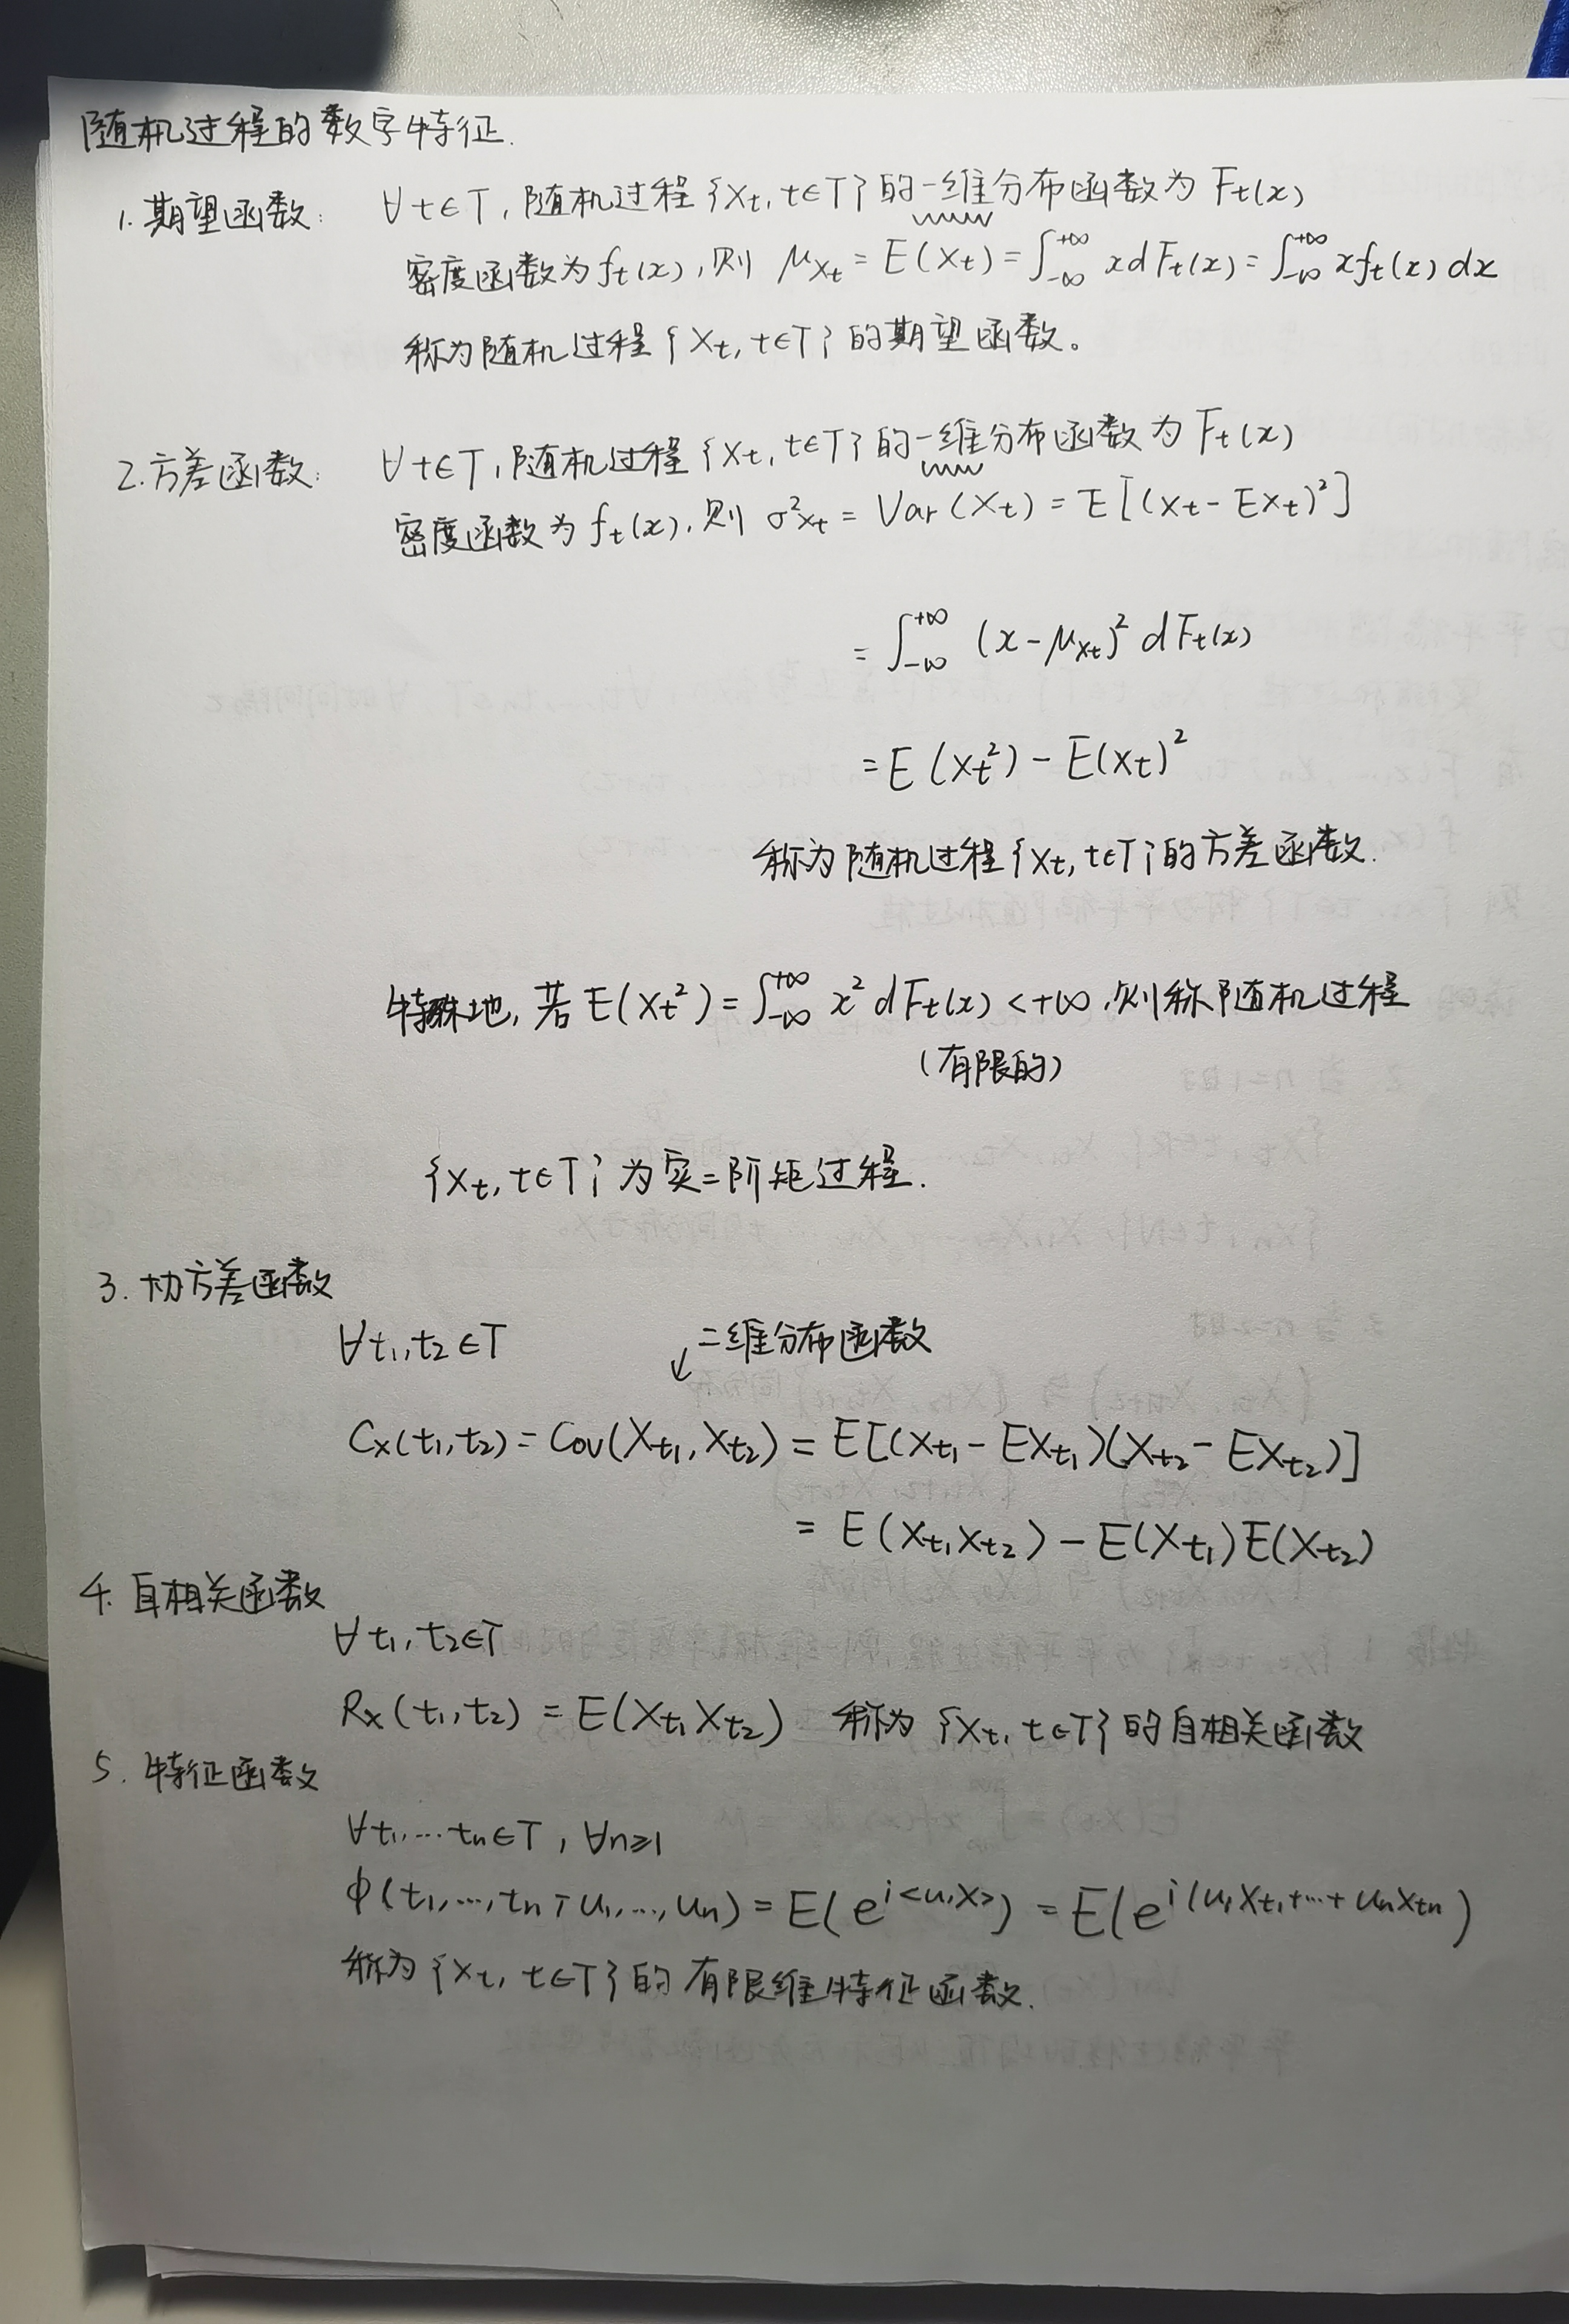 随机过程的数字特征.
1. 期望函数: ∀t∈T, 随机过程{Xt, t∈T}的一维分布函数为 Ft(x)
密度函数为ft(x), 则 μXt = E(Xt) = ∫_{-∞}^{+∞} x dFt(x) = ∫_{-∞}^{+∞} x ft(x) dx
称为随机过程{Xt, t∈T}的期望函数。
2. 方差函数: ∀t∈T, 随机过程{Xt, t∈T}的一维分布函数为 Ft(x)
密度函数为ft(x), 则 σ²Xt = Var(Xt) = E[(Xt - EXt)²]
= ∫_{-∞}^{+∞} (x - μXt)² dFt(x)
= E(Xt²) - E(Xt)²
称为随机过程{Xt, t∈T}的方差函数.
特殊地, 若E(Xt²) = ∫_{-∞}^{+∞} x² dFt(x) < +∞, 则称随机过程
(有限的)
{Xt, t∈T}为实二阶矩过程.
3. 协方差函数
∀t₁, t₂∈T ↙二维分布函数
Cx(t₁, t₂) = Cov(Xt₁, Xt₂) = E[(Xt₁ - EXt₁)(Xt₂ - EXt₂)]
= E(Xt₁Xt₂) - E(Xt₁)E(Xt₂)
4. 自相关函数
∀t₁, t₂∈T
Rx(t₁, t₂) = E(Xt₁Xt₂) 称为{Xt, t∈T}的自相关函数
5. 特征函数
∀t₁, … tn∈T, ∀n≥1
φ(t₁, …, tn; u₁, …, un) = E(e^{i<u,X>}) = E(e^{i(u₁Xt₁+…+unXtn})
称为{Xt, t∈T}的有限维特征函数.